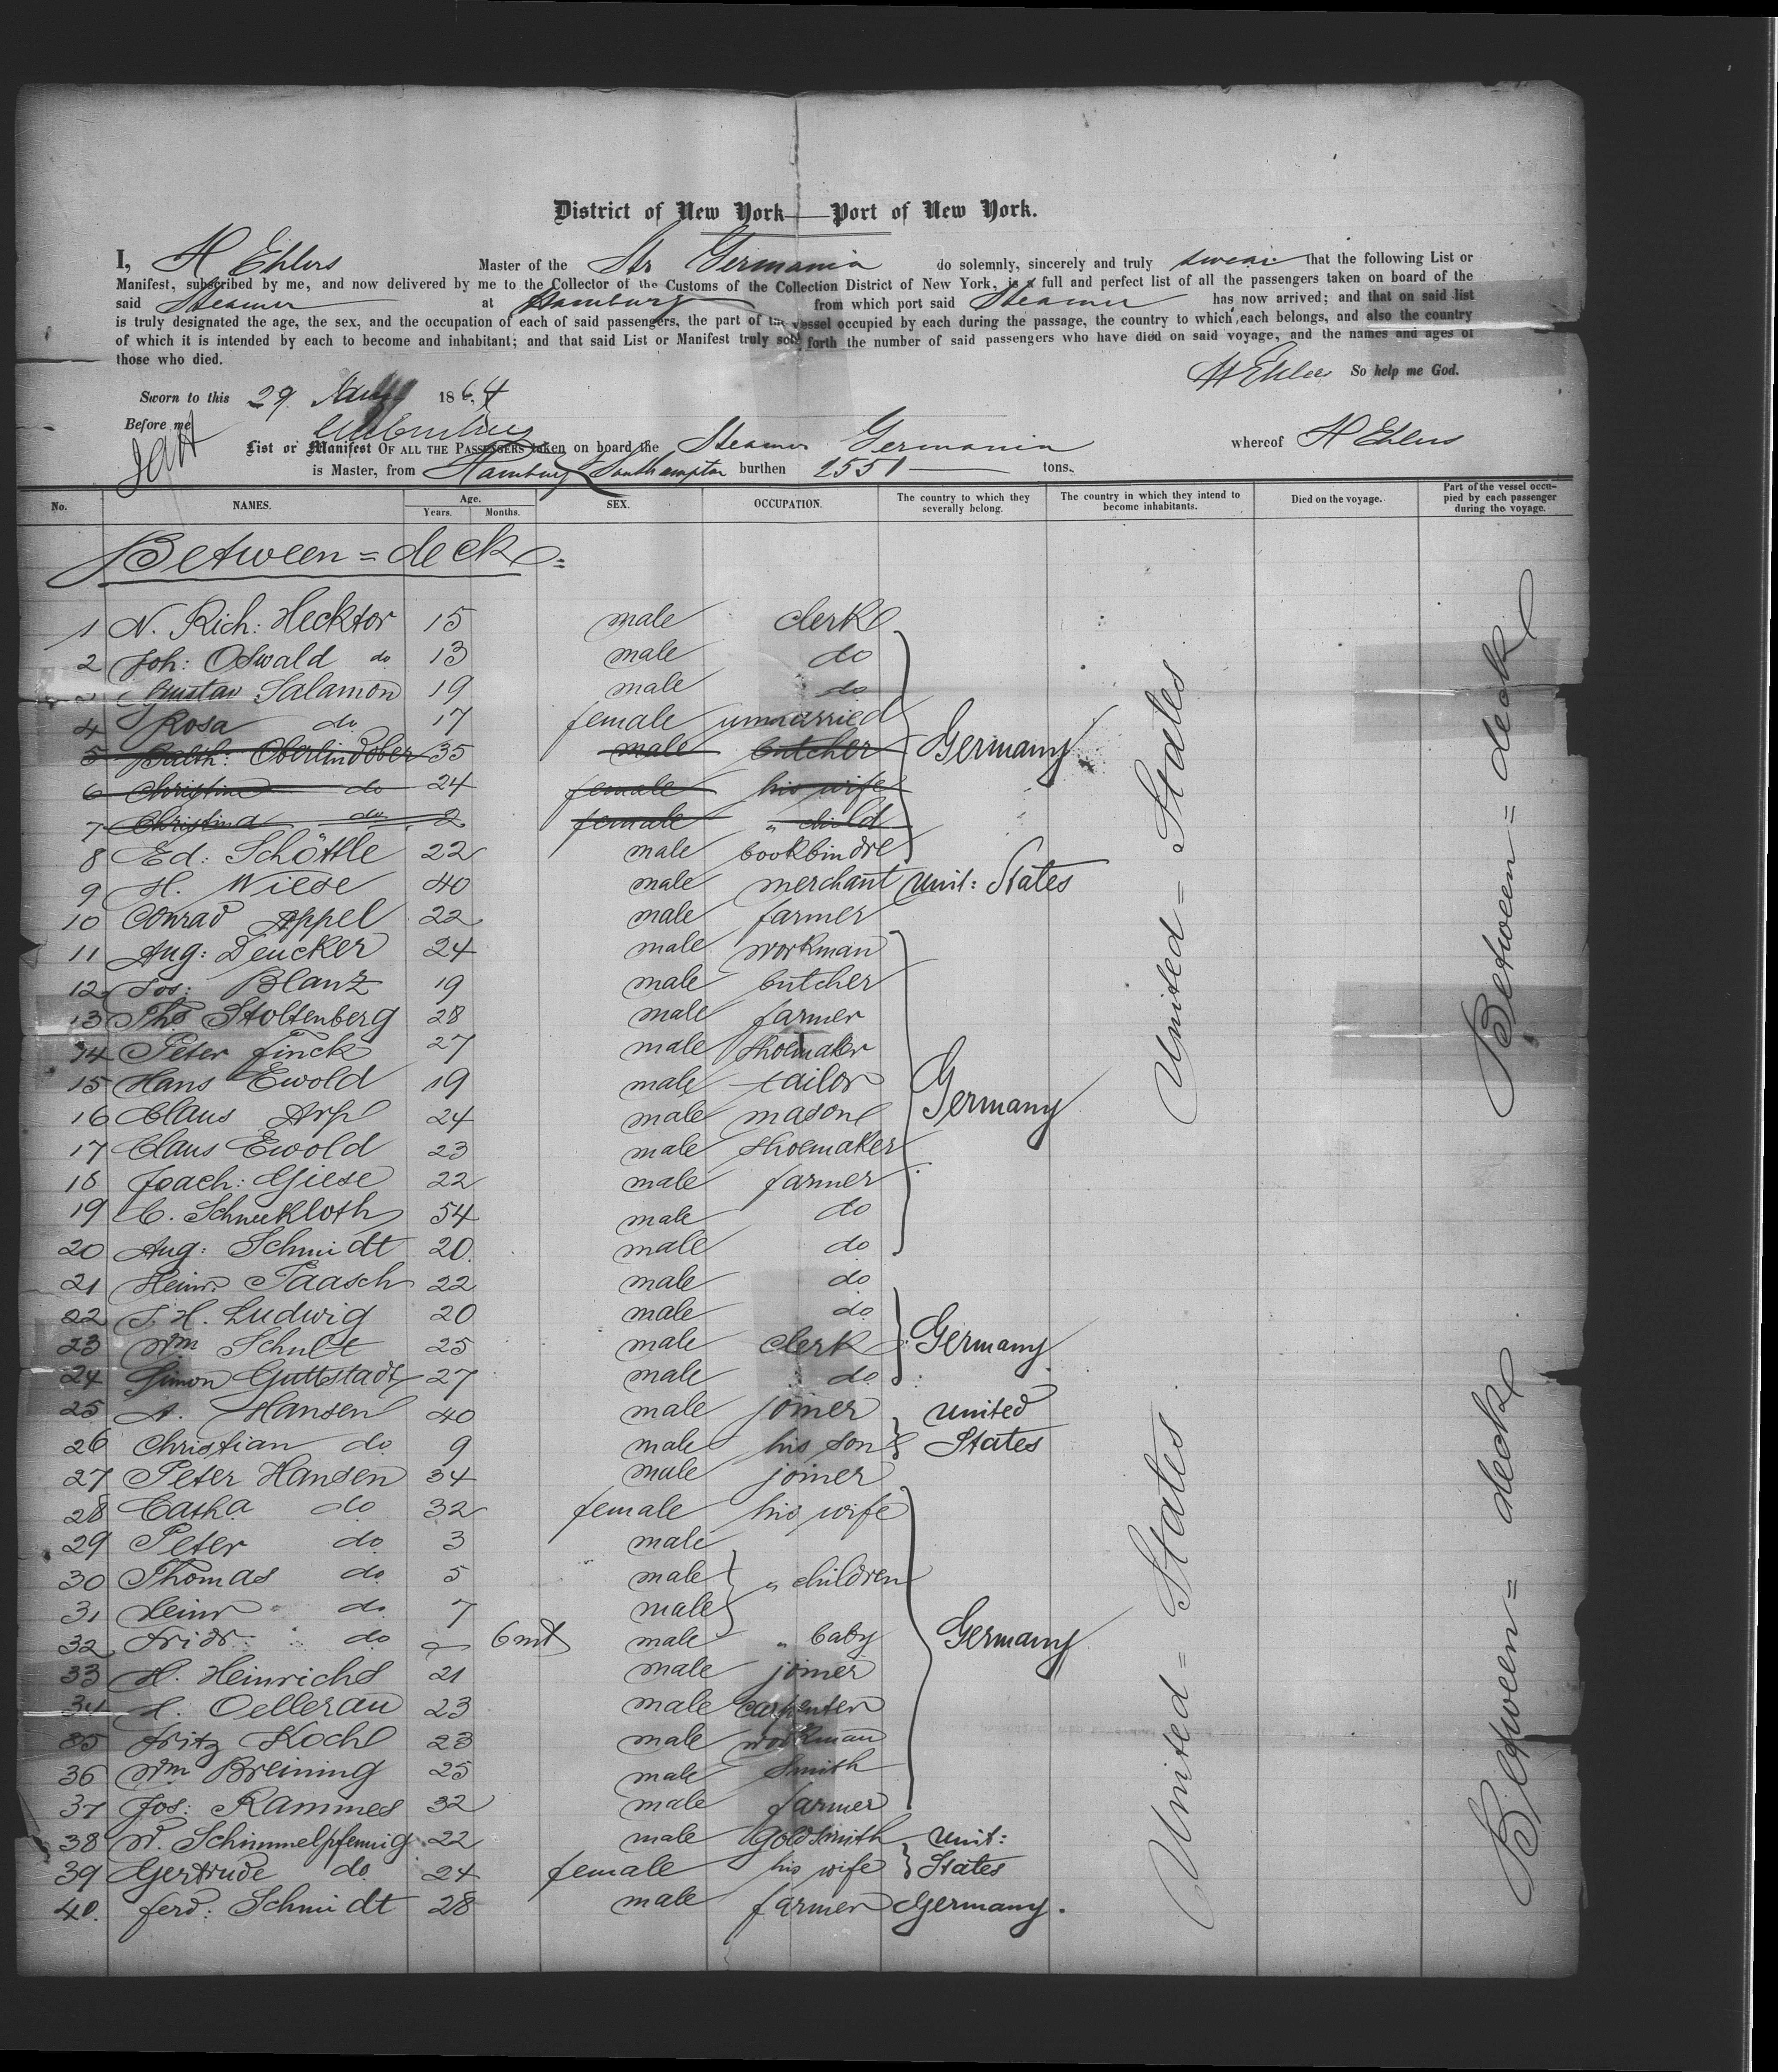 District of New York — Port of New York.
I, H Ehlers Master of the Str Germania do solemnly, sincerely and truly swear that the following List or
Manifest, subscribed by me, and now delivered by me to the Collector of the Customs of the Collection District of New York, is a full and perfect list of all the passengers taken on board of the
said Steamer at Hamburg from which port said Steamer has now arrived; and that on said list
is truly designated the age, the sex, and the occupation of each of said passengers, the part of the vessel occupied by each during the passage, the country to which each belongs, and also the country
of which it is intended by each to become and inhabitant; and that said List or Manifest truly sets forth the number of said passengers who have died on said voyage, and the names and ages of
those who died.
H Ehlers So help me God.
Sworn to this 29 1864
Before me
List or Manifest OF ALL THE PASSENGERS taken on board the Steamer Germania whereof H Ehlers
is Master, from Hamburg & Southampton burthen 2551 tons.
No. NAMES. Age. Years. Months. SEX. OCCUPATION. The country to which they severally belong. The country in which they intend to become inhabitants. Died on the voyage. Part of the vessel occupied by each passenger during the voyage.
Between=deck
1 N. Rich: Hecktor 15 male clerk
2 Joh: Oswald do 13 male do
Gustav Salamon 19 male do
4 Rosa do 17 female unmarried
5 Balth: Oberlindober 35 male butcher Germany
6 Christine do 24 female his wife
7 Christina do 2 female " child
8 Ed: Schöttle 22 male bookbindre
9 H. Wiese 40 male merchant Unit: States
10 Conrad Appel 22 male farmer
11 Aug: Deucker 24 male workman
12 Jos: Blanz 19 male butcher
13 Ths Stoltenberg 28 male farmer
14 Peter Finck 27 male shoemaker
15 Hans Ewold 19 male tailor
16 Claus Arp 24 male mason Germany
17 Claus Ewold 23 male shoemaker
18 Joach: Giese 22 male farmer
19 C. Schneekloth 54 male do
20 Aug: Schmidt 20 male do
21 Heinr. Paasch 22 male do
22 J. H. Ludwig 20 male do
23 Wm Schult 25 male clerk Germany
24 Simon Guttstadt 27 male do
25 A. Hansen 40 male joiner United
26 Christian do 9 male his son States
27 Peter Hansen 34 male joiner
28 Catha do 32 female his wife
29 Peter do 3 male
30 Thomas do 5 male " children
31 Heinr do 7 male
32 Fridr: do 6 mt male " baby Germany
33 H. Heinrichs 21 male joiner
34 H. Oellerau 23 male carpenter
35 Fritz Koch 23 male workman
36 Wm Breining 25 male Smith
37 Jos: Rammes 32 male farmer
38 W. Schimmelpfennig 22 male Goldsmith Unit:
39 Gertrude do 24 female his wife States
40. Ferd: Schmidt 28 male farmer Germany.
United = States
United = States
Between = deck
Between = deck